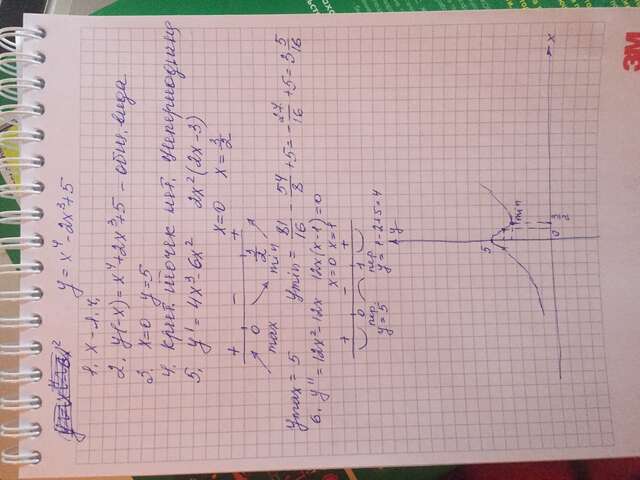 y = x⁴ - 2x³ + 5
1. x - л. ч.
2. y(-x) = x⁴ + 2x³ + 5 - общ. вида
3. x = 0 y = 5
4. крит. точек нет.
5. y' = 4x³ - 6x² 2x²(2x - 3)
x = 0 x = 3/2
+ - +
0 3/2
max min
y max = 5 y min = 81/16 - 54/8 + 5 = -27/16 + 5 = 3 5/16
6. y'' = 12x² - 12x 12x(x - 1) = 0
x = 0 x = 1
+ - +
0 1
пер. пер.
y = 5 y = 1 - 2 + 5 = 4
y
5
min
0 3/2 x
3M